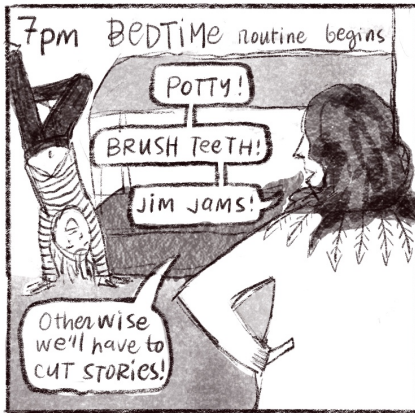 7pm BEDTIME routine begins
POTTY!
BRUSH TEETH!
JIM JAMS!
Otherwise
we'll have to
CUT STORIES!